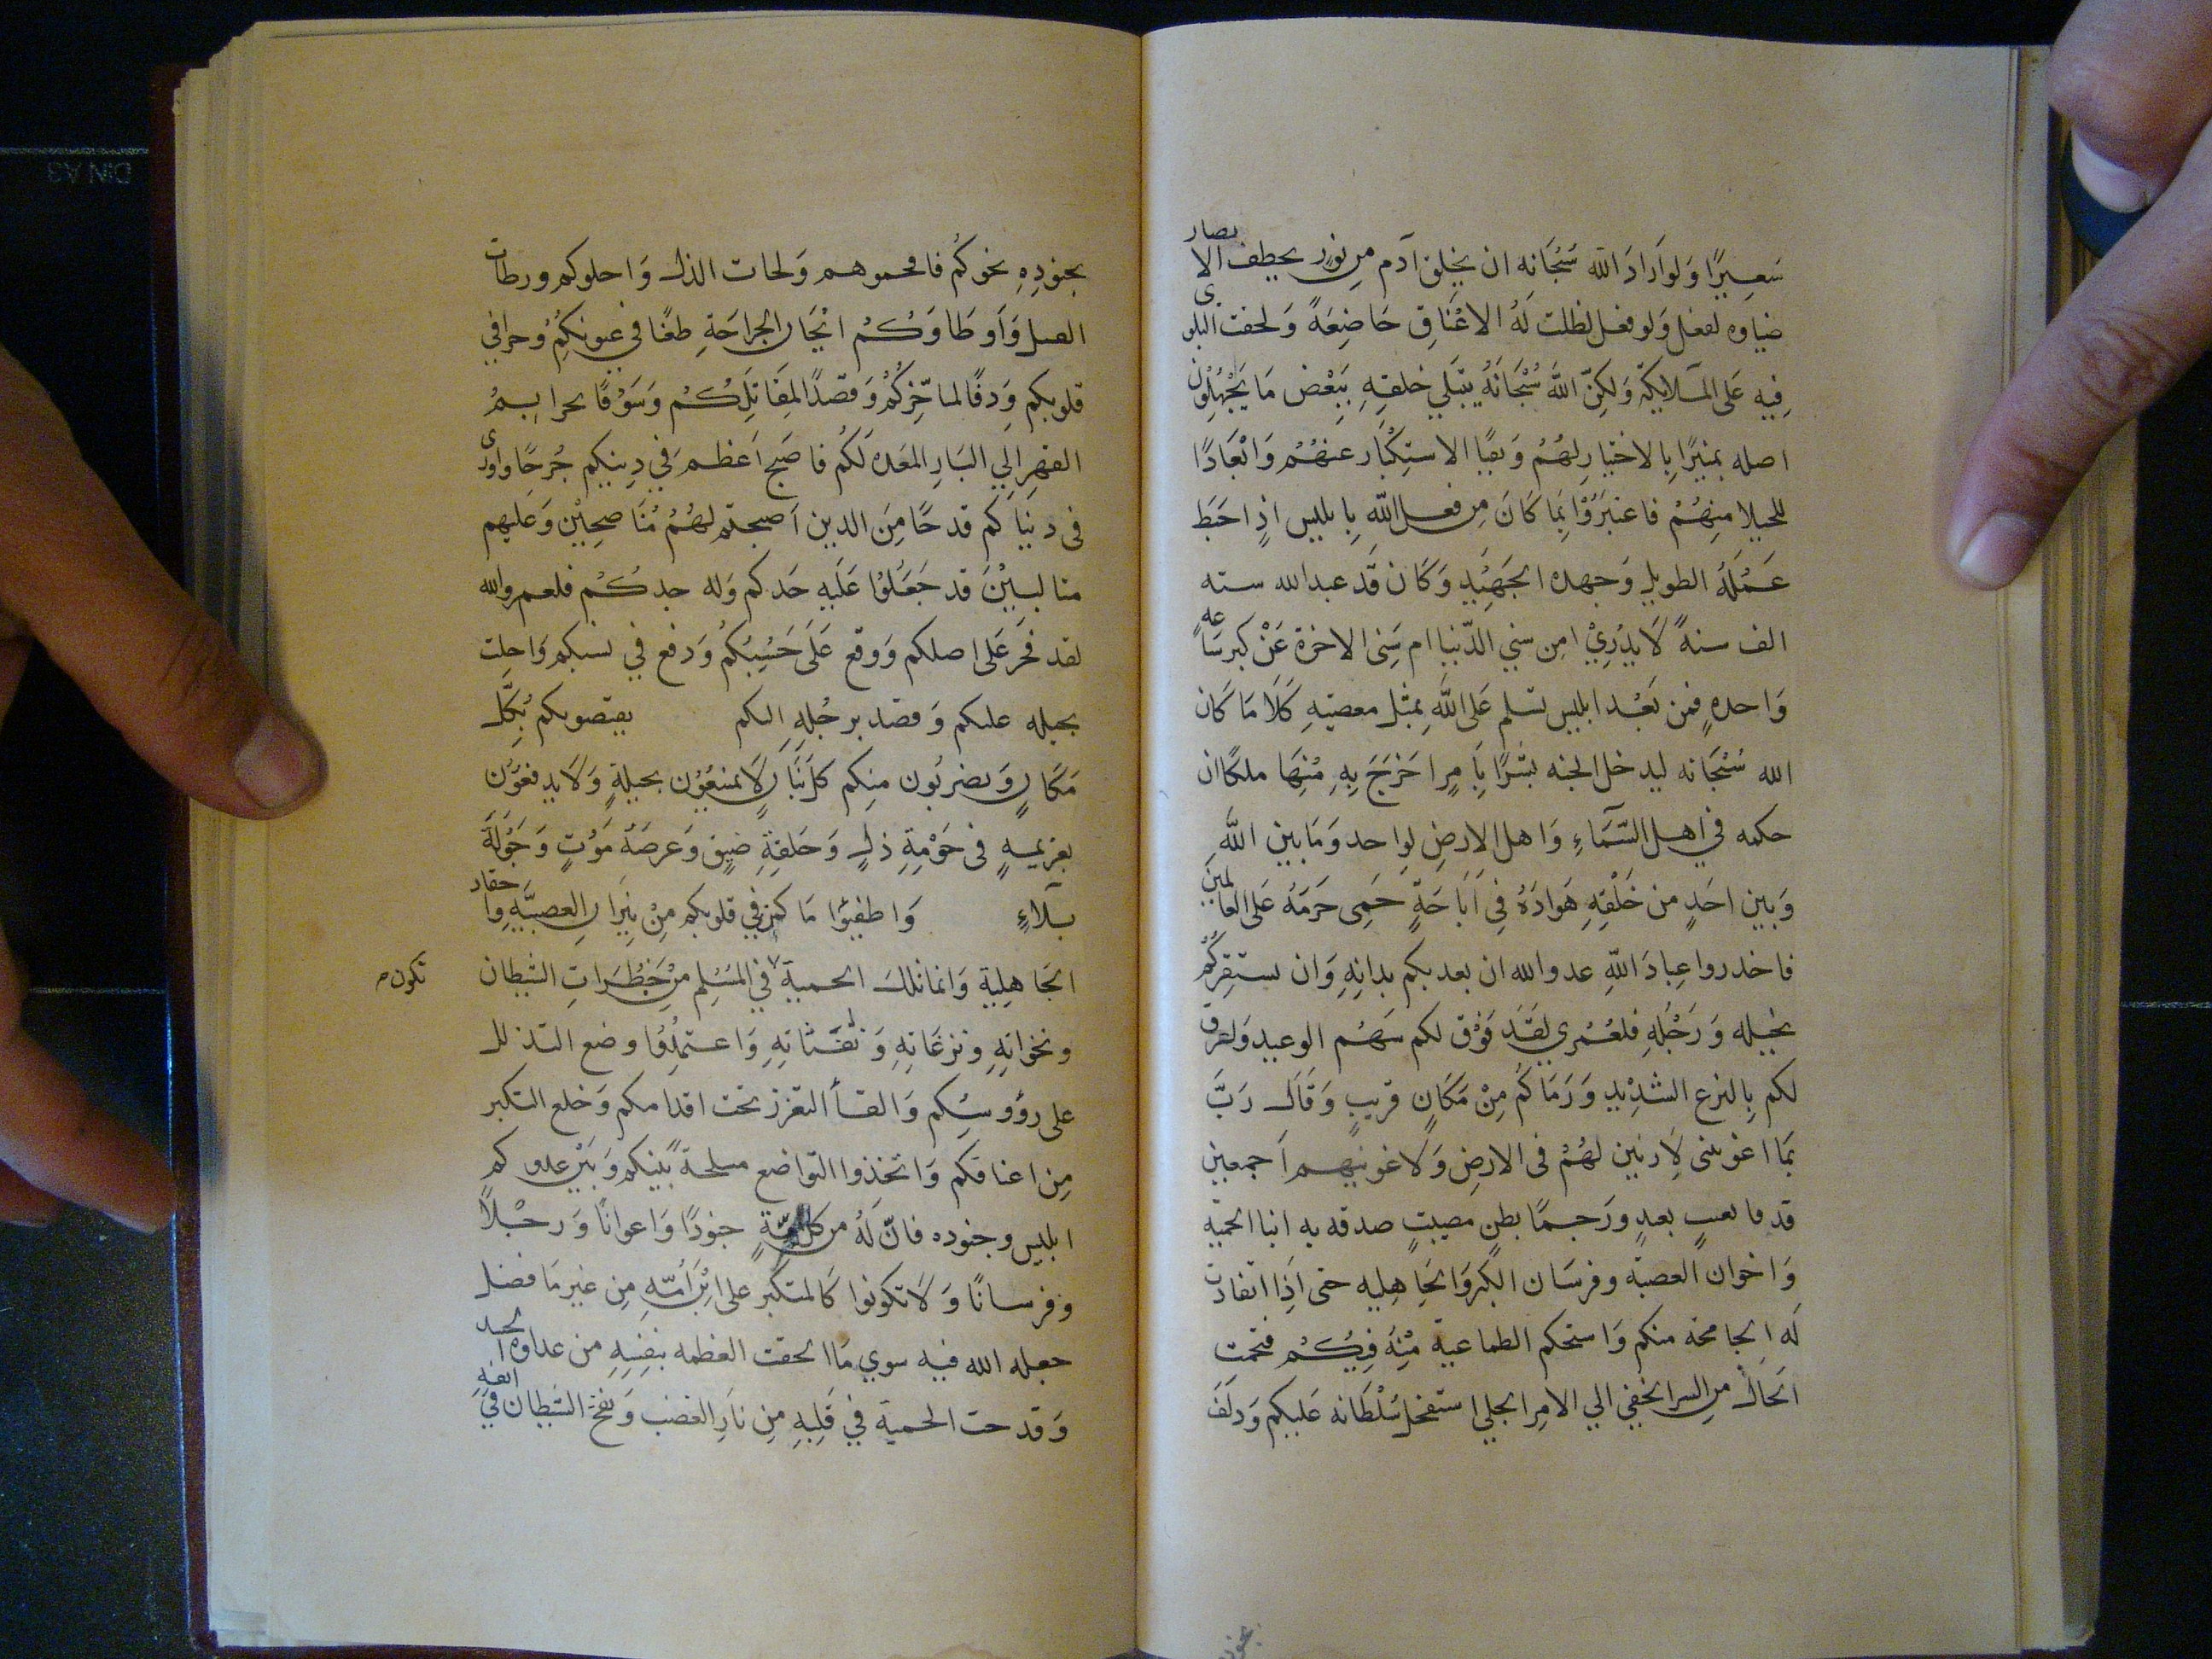 سَعِيرًا وَلَو اَرادَ الله سُبْحَانِه ان يخلق آدم مِن نورٍ يحطف الابصار
ضياوه لفعل وَلو فعل لظلت لَهُ الاعْنَاق خَاضِعَةً وَلخفت البلوى
فِيه عَلى المَلايكة وَلكِنّ اللهَ سُبْحَانَهُ يبْتَلي خلقهِ بِبَعْض مَا يَجْهلُونَ
اصله بمييزًا بِالاختبارِ لهُمُ وَنفيًا الاستِكْبَار عنهُمُ وَابْعَادًا
للخيلا مِنهُمُ فاعتبَرُوْا بَمَا كَانَ مِن فعل الله بِابلیس اذٍ احَبَط
عَمَلَهُ الطويل وَجهده الجَهِيْدِ وَكَان قَد عبد الله سته
الف سنةً لَا يدُرِيْ امِن سني الدّنيا ام سَنِى الاخرة عَنْ كبر سَاعه
وَاحدهٍ فمن بَعْد ابليس تسلم عَلى اللهِ بِمثْل معصيتِهِ كَلَا مَا كَان
الله سُبْحَانه ليدخل الجنه بشَرًا بِأمرٍ اخرَجَ بِهِ مُنِهَا ملكًا ان
حكمه في أهل السّمَاءِ وَاهل الارضِ لوِاحد وَمَا بين اللهِ
وَبين احَدٍ من خَلْقِهِ هَوادَهُ في اَبَاحَةٍ حَمِى حَرَمَهُ عَلى العالمينَ
فاحذروا عِبادَ اللهِ عدو الله ان يعديكم بدائِهِ وَان يستفِزكُمُ
بخيله وَرَجْلِهِ فلعُمْري لقَدَ فَوْق لكم سَهُم الوعيد وَلغرق
لكم بِالنزع الشدْيِد وَرَمَاكُم مِنْ مَكَانٍ قريبٍ وَقَال رَبَّ
بَمَا اغويتنى لَازينن لهُمُ فى الارضِ وَلاغوينهم اَجمعين
قدفا بعيبٍ بعيدٍ ورَجمًا بطنٍ مصيبٍ صدقه به ابنا الحمية
وَاخوان العصبة وفرسَان الكبر وَالجَاهِليه حتى اَذِا انقادت
لَه الجامحة منكم وَاستحكم الطماعية مْنِهُ فِيكُم فنجمت
الحَال مِن السر الخفي الي الامِر الجلي استفحل سُلْطَانه عَليكم وَدلَف
بجنودِهِ نحوكُم فاقحموهم وَلحات الذل وَاحلوكم ورطات
القتل وَاَوطَاوَكُم اثْخان الجراحَةِ طعًنا في عيونكُمِ وحزا في
قلوبكم وَدقًا لمناخِركُمُ وَقصدًا لمِقَاتِلكُم وَسَوْقًا بحزائِمُ
القهرِ الي النّارِ المعَده لَكُم فاصَبح اَعظم في دِينكم جُرحًا واورى
فى دنيَاكم قدحًا مِنَ الدين اَصبحتم لهُمُ مُنَاصحِبْين وَعَليهم
متالبينَ قد جَعَلُوْا عَلَيهِ حَدكم وَله جدكُم فلعمرو الله
لقد فَخَر عَلى اصلكم وَوقع عَلَى حَسُبِكُم وَدفع في نسبكم وَاجلبَ
بخيله عليكم وَقصد برجْلهِ اليكم يقتصونكم بُكِلَّ
مَكَانٍ وَيضربُون منِكم كلَ بَنَانٍ لَا تمتنعُوْن بحيلةٍ وَلَا يدفعوَن
بعزيمهٍ فى حَوْمةِ ذلٍ وَحَلقةِ ضيق وَعرصَةُ مَوْتٍ وَجَوْلَةَ
بَلاءٍ وَاطفيؤا مَا كمن في قلوبكم مِنْ نِيرَانِ العصبيَّهِ واحقاد
الجَاهِلية وَانما تلك الحمية في المُسْلِم مِن خَطَرَاتِ الشيطان
تكون
ونخواتِهِ ونزغاتِهِ وَنفَثاتهِ وَاعتمِدُوا وضع التذلل
على رؤوسِكم وَالقأ التعزز تحت اقدامكم وَخلع التكبر
مِن اعناقكم وَاتخذوا التواضع مسلحةً بينكم وَبَيْن عدوكم
ابليس وجنوده فانّ لَهُ من كل امّةٍ جنودًا وَاعوانًا وَرجْلًا
وفرسانًا وَلَا تكونوا كَالمتكَبر على ابْنِ اُمّهِ مِن غير مَا فضل
جعله الله فيه سوي مَا الحقت العظمه بنفِسِهِ من عداوه الحسد
وَقدحت الحمية في قَلبِهِ مِن نارِ الغضب وَنفخ الشَيطان في انفهِ